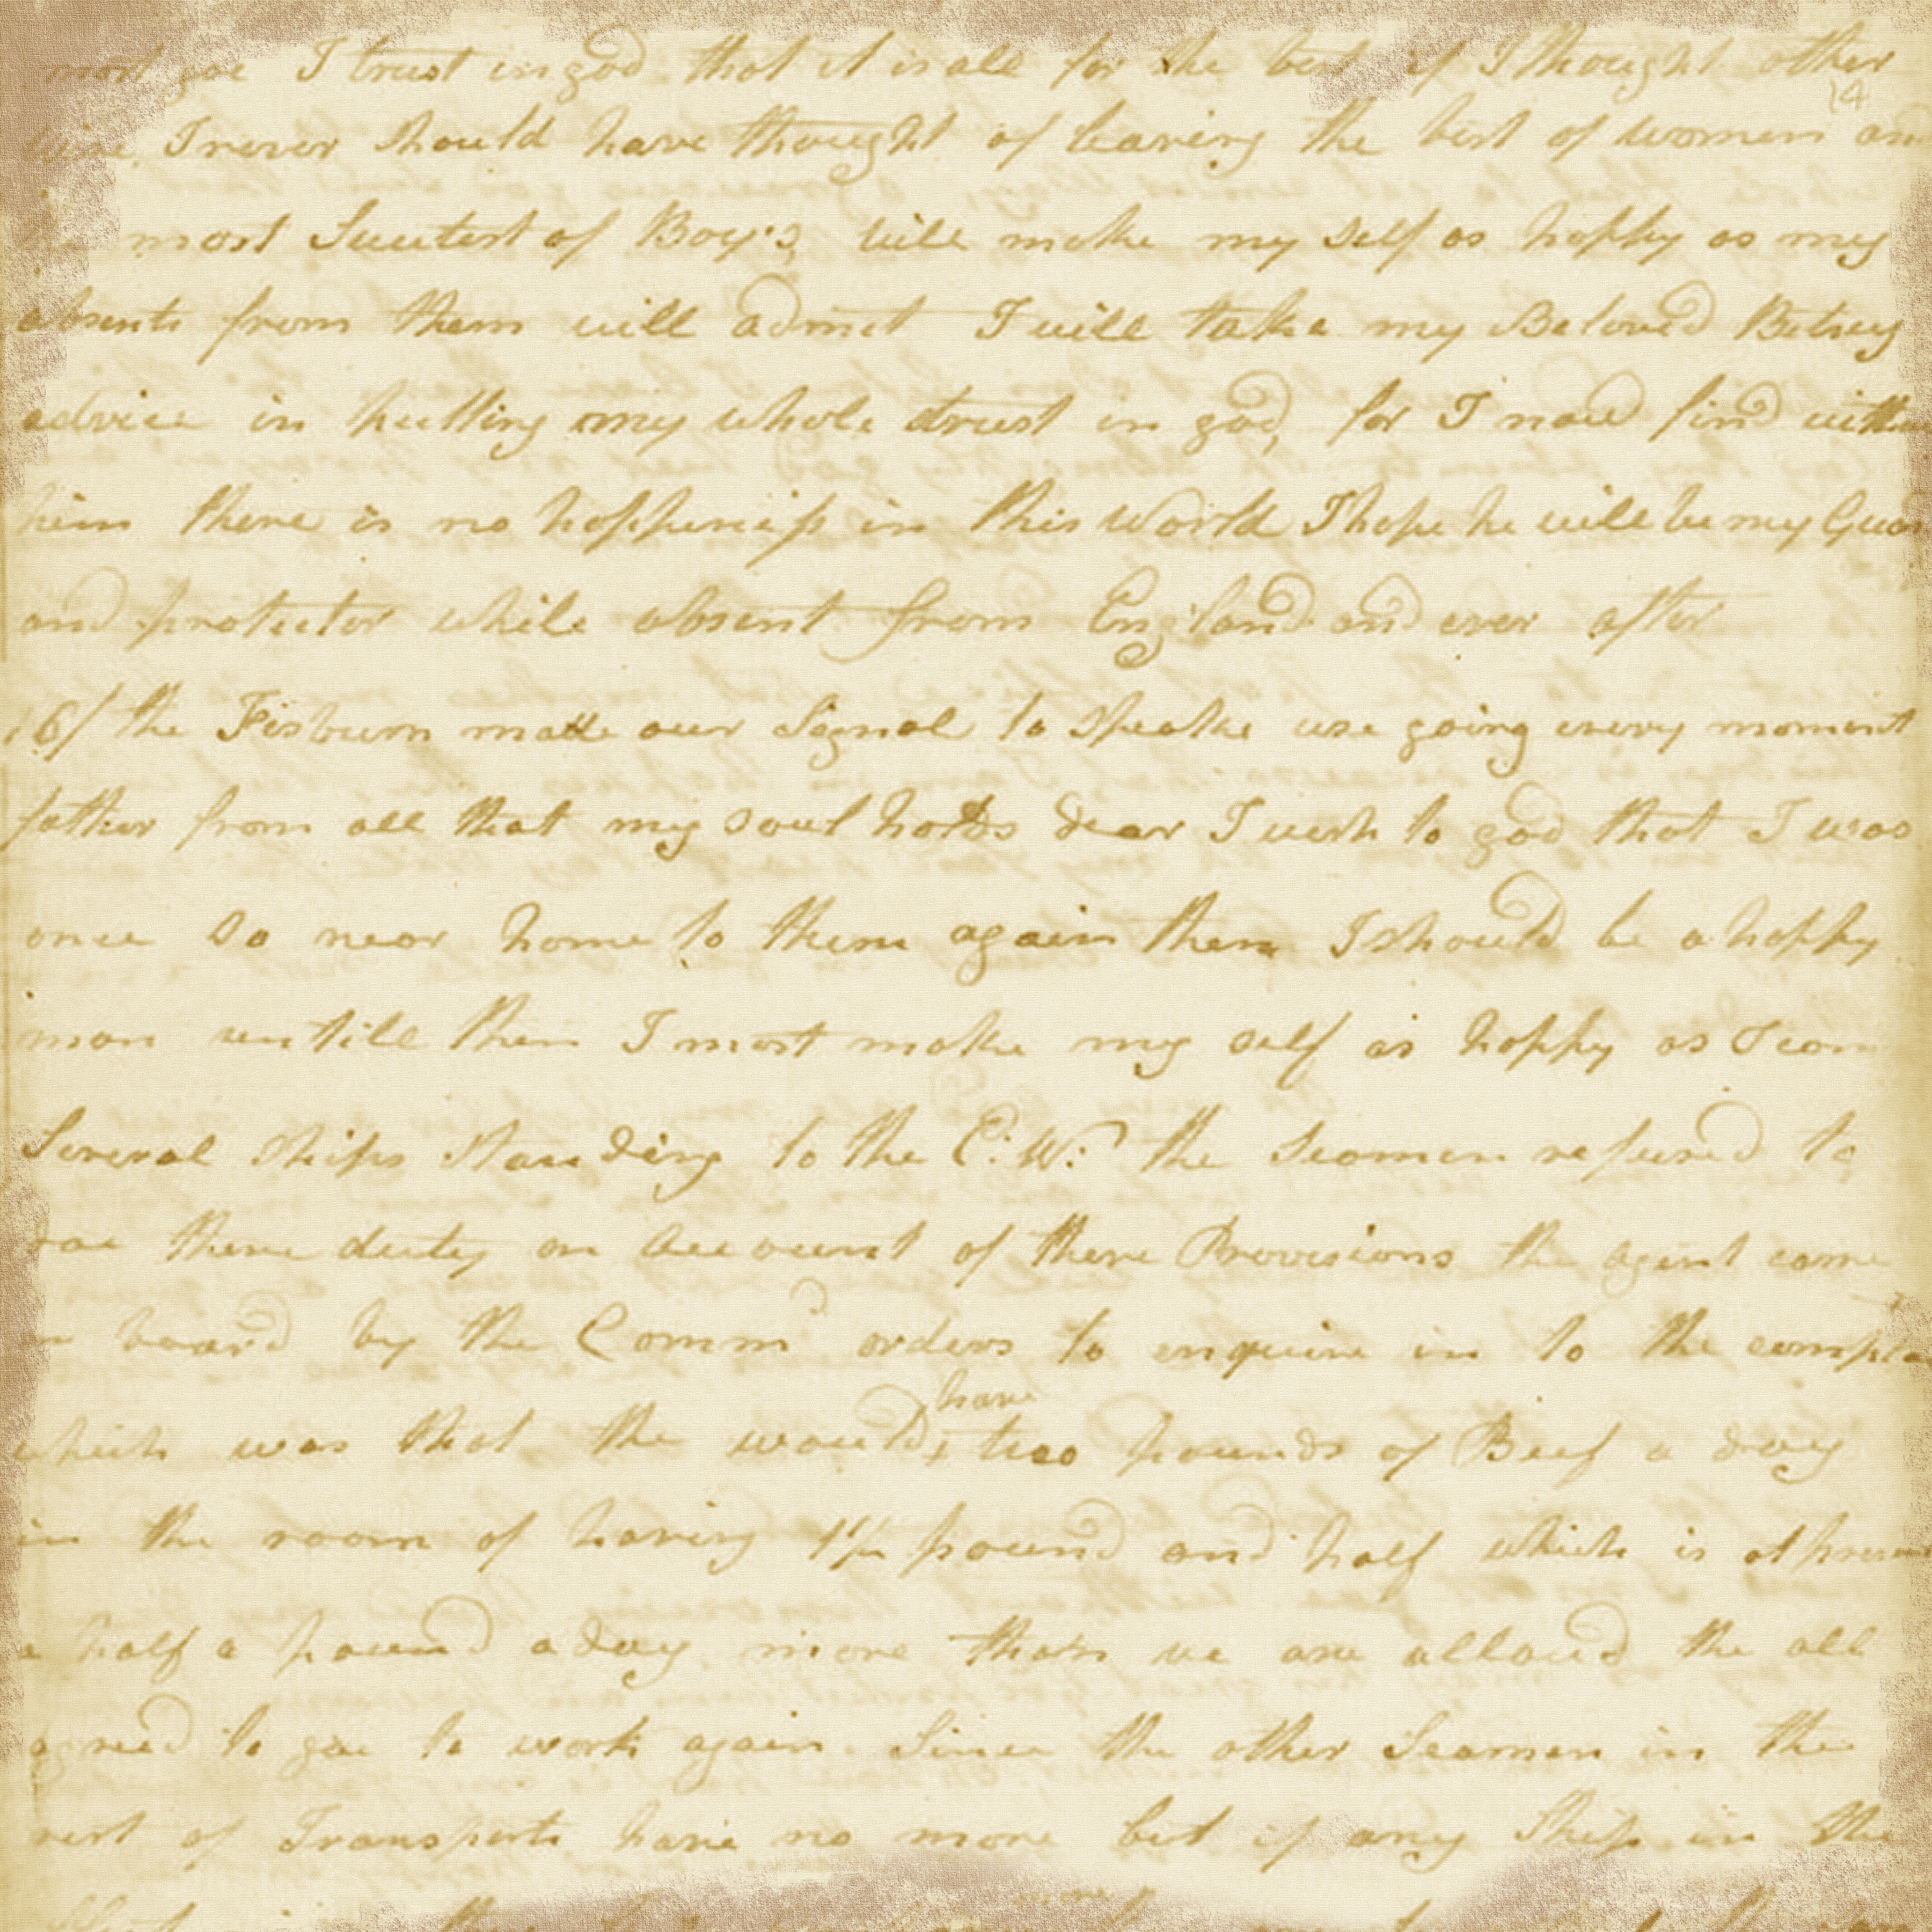 most goe I trust in god that it is all for the best if I thought other
14
wise I never should have thought of leaving the best of women and
most Sweetest of Boy's, will make my self as happy as my
absents from them will admet I will take my Beloved Betsey
advice in putting my whole trust in god, for I now find with
him there is no happeness in this World I hope he will be my Guar
and protector while absent from England and ever after
16/ the Fisburn made our Signal to Speake use going every moment
father from all that my Soul holds dear I wish to god that I was
once so near home to them again then I should be a happy
man untill then I most make my self as happy as I can
Several Ships Standing to the E.W: the Seamen refused to
doe there duty on Account of there Provisions the agent came
on board by the Commd orders to enquire in to the compla
which was that the would have two pounds of Beef a day
in the room of having 1½ pound and half which is at presen
a half a pound a day more than we are allowd the all
agreed to goe to work again. Since the other Seamen in the
rest of Transports have no more but if any Ship in the